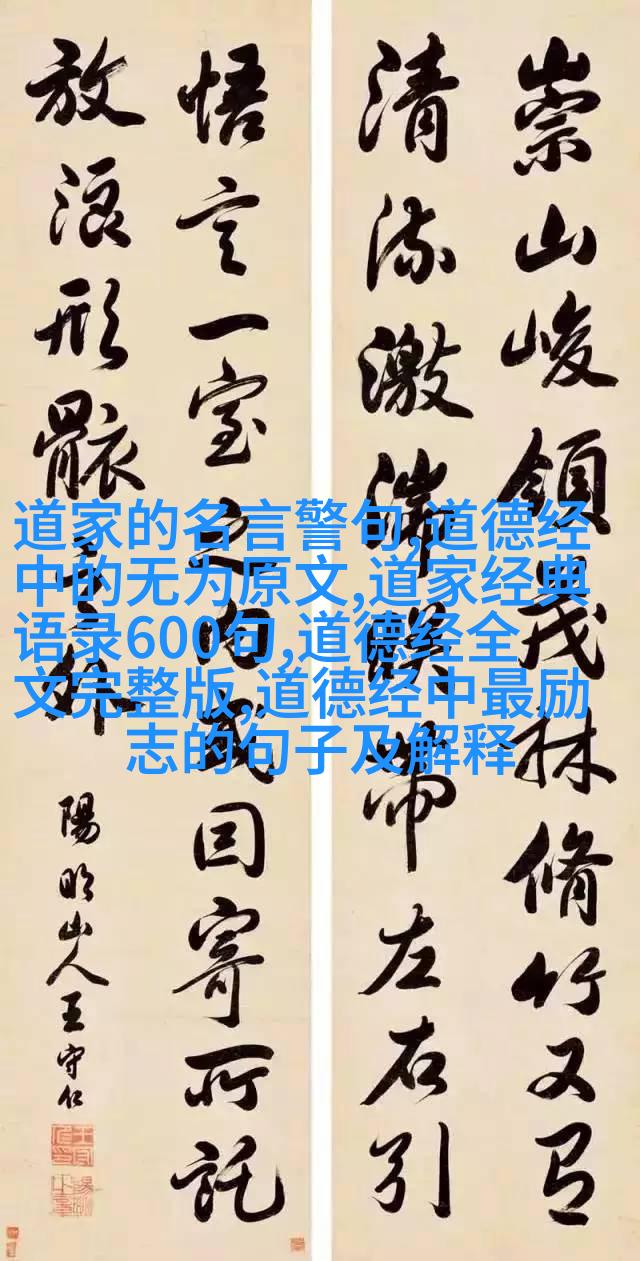 崇山峻領茂林脩竹又有
清流激湍暎帶左右引
悟言一室之内或因寄所託
放浪形骸之外
陽明山人王守仁
道家的名言警句,道德经
中的无为原文,道家经典
语录600句,道德经全
文完整版,道德经中最励
志的句子及解释